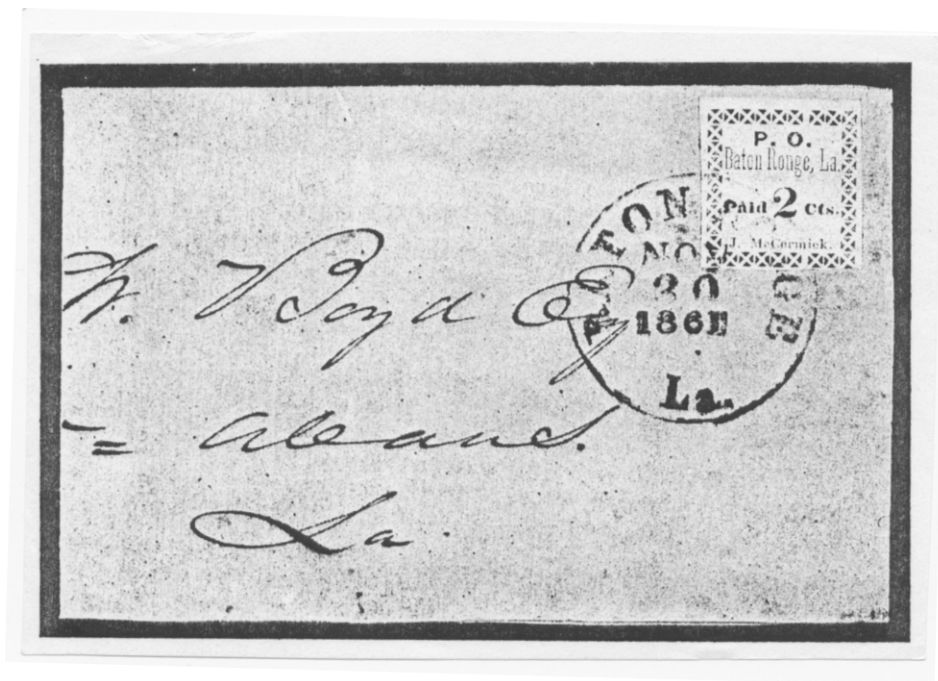 P. O.
Baton Rouge, La.
Paid 2 Cts.
J. McCormick.
NOV
30
1861
La.
W. Boyd Esq
Orleans.
La.